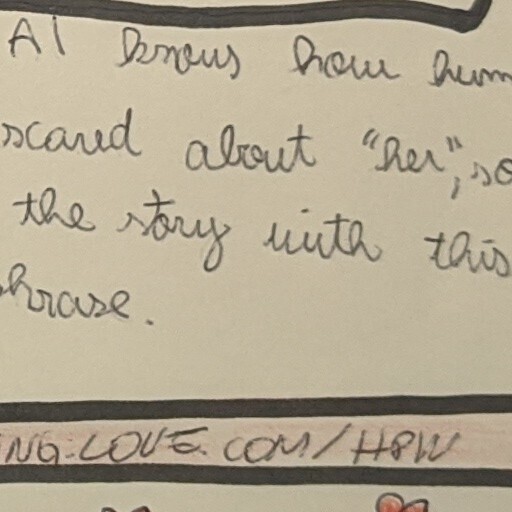 AI knows how hum
scared about "her", so
the story with this
phrase.
NG-LOVE.COM/H8W